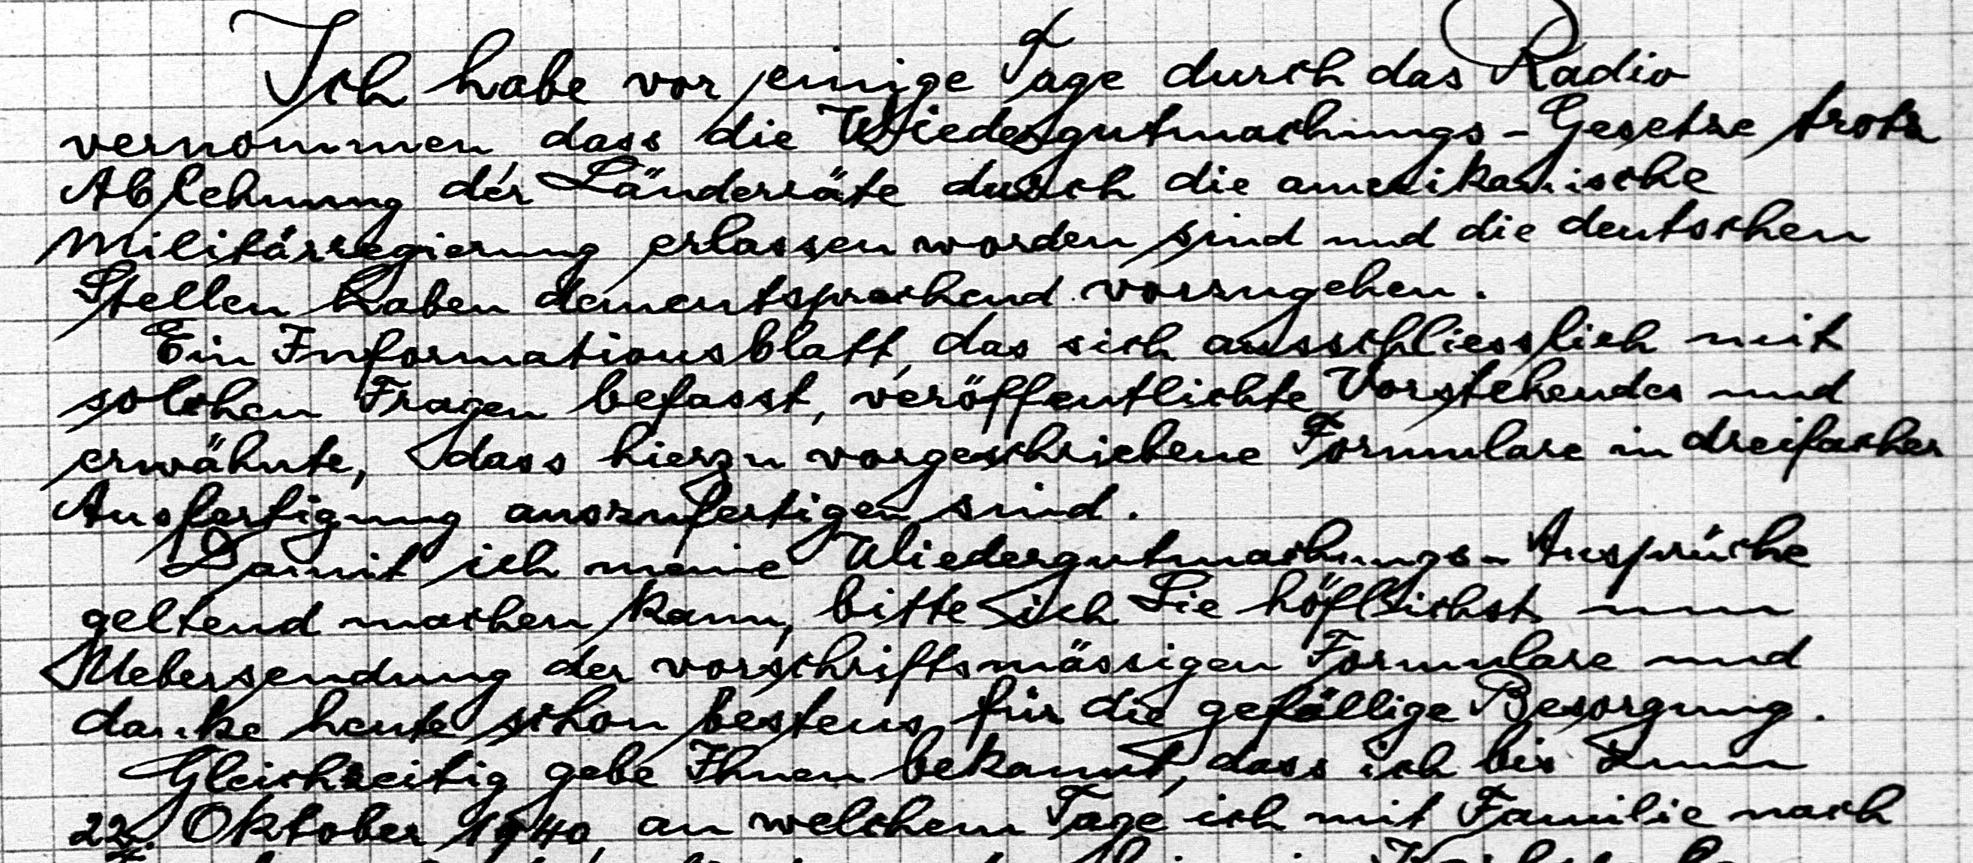 Ich habe vor einige Tage durch das Radio
vernommen, dass die Wiedergutmachungs-Gesetze trotz
Ablehnung der Länderräte durch die amerikanische
Militärregierung erlassen worden sind und die deutschen
Stellen haben dementsprechend vorzugehen.
Ein Informationsblatt, das sich ausschliesslich mit
solchen Fragen befasst, veröffentlichte Vorstehendes und
erwähnte, dass hierzu vorgeschriebene Formulare in dreifacher
Ausfertigung auszufertigen sind.
Damit ich meine Wiedergutmachungs-Ansprüche
geltend machen kann, bitte ich Sie höflichst um
Uebersendung der vorschriftsmässigen Formulare und
danke heute schon bestens für die gefällige Besorgung.
Gleichzeitig gebe Ihnen bekannt, dass ich bis zum
22. Oktober 1940, an welchem Tage ich mit Familie nach